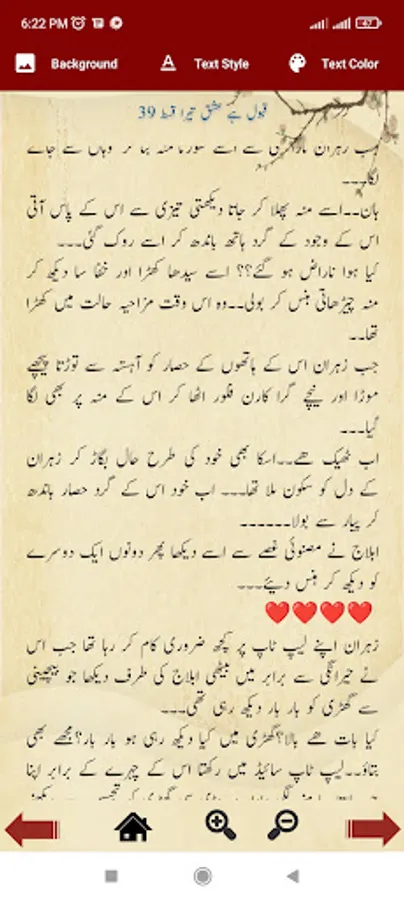 6:22 PM
47
Background
Text Style
Text Color
قبول ہے عشق تیرا قسط 39
زہران سے اسے منہ بنا کر وہاں سے جانے
لگا۔۔۔
ہان۔۔اسے منہ پھلا کر جاتا دیکھتی تیزی سے اس کے پاس آتی
اس کے وجود کے گرد ہاتھ باندھ کر اسے روک گئی۔۔۔
کیا ہوا ناراض ہو گئے؟؟ اسے سیدھا کھڑا اور خفا سا دیکھ کر
منہ چیڑھاتی ہنس کر بولی۔۔وہ اس وقت مزاحیہ حالت میں کھڑا
تھا۔۔
جب زہران اس کے ہاتھوں کے حصار کو آہستہ سے توڑتا پیچھے
موڑا اور نیچے گرا کارن فلور اٹھا کر اس کے منہ پر بھی لگا
گیا۔۔۔
اب ٹھیک ھے۔۔اسکا بھی خود کی طرح حال بگاڑ کر زہران
کے دل کو سکون ملا تھا۔۔۔ اب خود اس کے گرد حصار باندھ
کر پیار سے بولا۔۔۔۔۔۔
ابلاج نے مصنوئی غصے سے اسے دیکھا پھر دونوں ایک دوسرے
کو دیکھ کر ہنس دیئے۔۔۔
❤❤❤❤
زہران اپنے لیپ ٹاپ پر کچھ ضروری کام کر رہا تھا جب اس
نے حیرانگی سے برابر میں بیٹھی ابلاج کی طرف دیکھا جو بیچینی
سے گھڑی کو بار بار دیکھ رہی تھی۔۔۔
کیا بات ھے بالا؟گھڑی میں کیا دیکھ رہی ہو بار بار؟مجھے بھی
بتاؤ۔۔لیپ ٹاپ سائیڈ میں رکھتا اس کے چہرے کے برابر اپنا